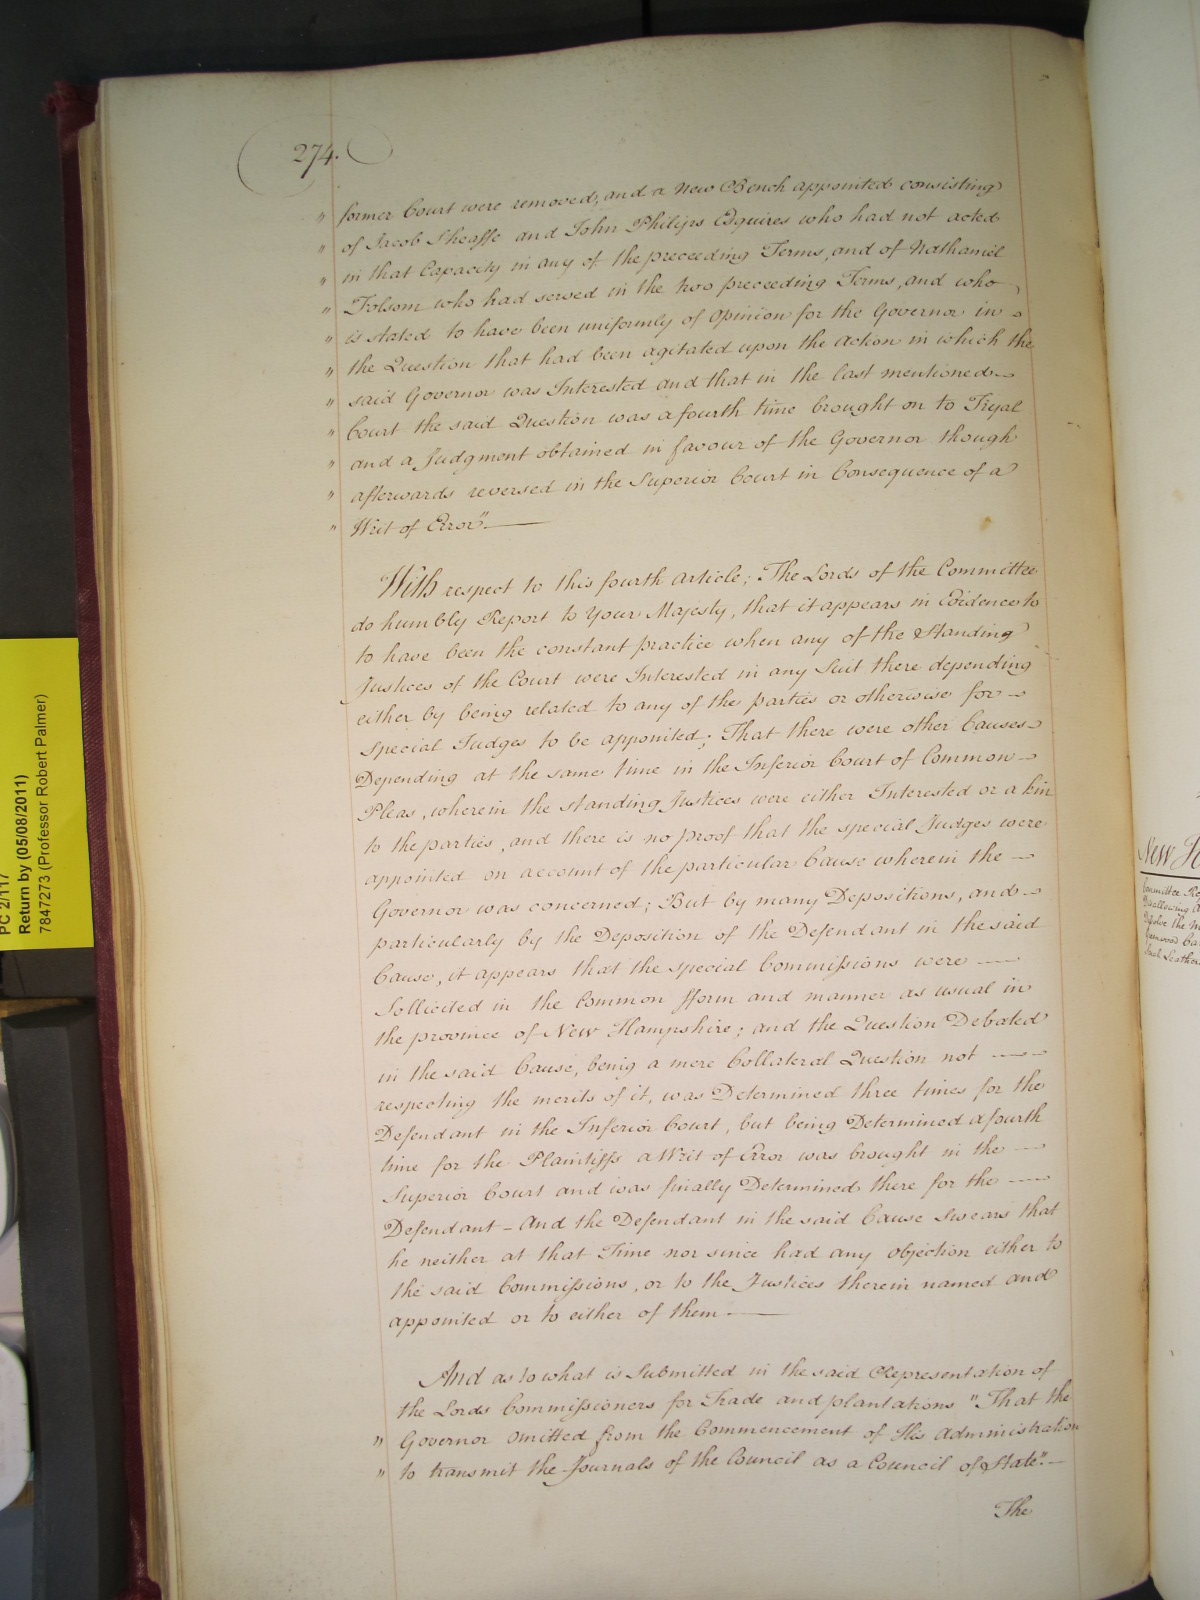 274.
" former Court were removed, and a New Bench appointed consisting
" of Jacob Sheaffe and John Philips Esquires who had not acted
" in that Capacity in any of the preceeding Terms, and of Nathaniel
" Folsom who had served in the two preceeding Terms, and who
" is stated to have been uniformly of Opinion for the Governor in
" the Question that had been agitated upon the Action in which the
" said Governor was Interested and that in the last mentioned
" Court the said Question was a fourth time brought on to Tryal
" and a Judgment obtained in favour of the Governor though
" afterwards reversed in the Superior Court in Consequence of a
" Writ of Error".
With respect to this fourth Article; The Lords of the Committee
do humbly Report to Your Majesty, that it appears in Evidence to
to have been the constant practice when any of the Standing
Justices of the Court were Interested in any Suit there depending
either by being related to any of the parties or otherwise for
special Judges to be appointed; That there were other Causes
Depending at the same time in the Inferior Court of Common
Pleas, wherein the standing Justices were either Interested or a kin
to the parties, and there is no proof that the special Judges were
appointed on account of the particular Cause wherein the
Governor was concerned; But by many Depositions, and
particularly by the Deposition of the Defendant in the said
Cause, it appears that the special Commissions were
Sollicited in the Common fform and manner as usual in
the province of New Hampshire; and the Question Debated
in the said Cause, being a mere Collateral Question not
respecting the merits of it, was Determined three times for the
Defendant in the Inferior Court, but being Determined a fourth
time for the Plaintiffs a Writ of Error was brought in the
Superior Court and was finally Determined there for the
Defendant - And the Defendant in the said Cause swears that
he neither at that Time nor since had any objection either to
the said Commissions, or to the Justices therein named and
appointed or to either of them
And as to what is Submitted in the said Representation of
the Lords Commissioners for Trade and plantations "That the
" Governor omitted from the Commencement of His Administration
" to transmit the Journals of the Council as a Council of State".
The
PC 2/117
Return by (05/08/2011)
7847273 (Professor Robert Palmer)
New
Committee
Disallowing
Dissolve the